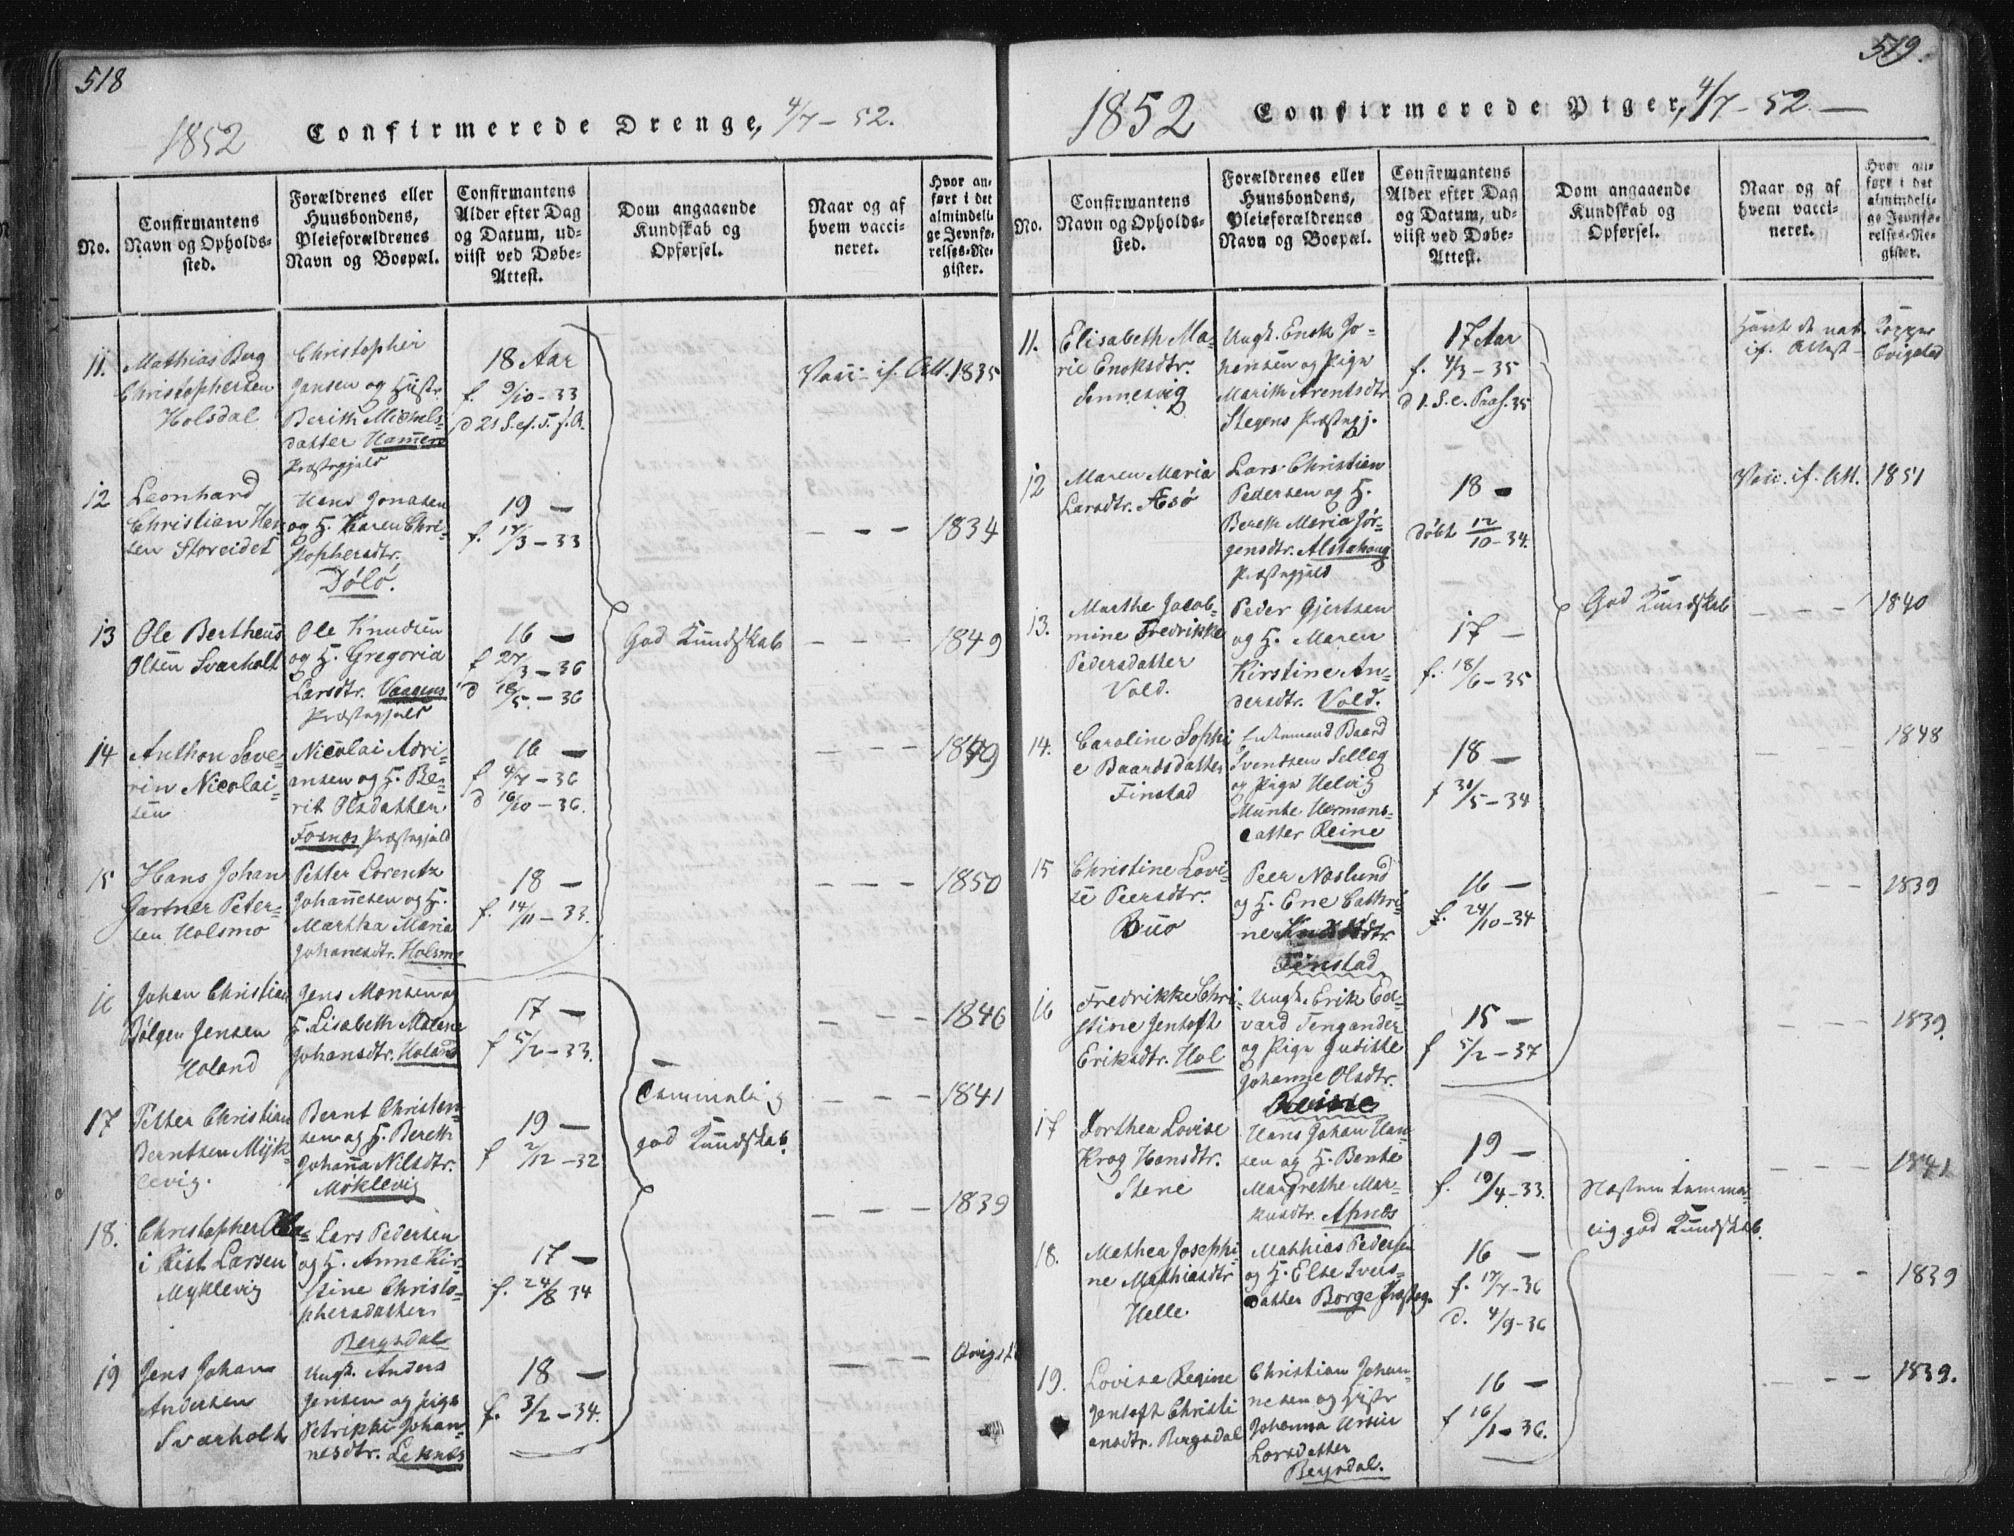 518
1852 Confirmerede Drenge, 4/7 - 52.
No.
Confirmantens Navn og Opholdssted.
Forældrenes eller Huusbondens, Pleieforældrenes Navn og Boepæl.
Confirmantens Alder efter Dag og Datum, udviist ved Døbe-Attest.
Dom angaaende Kundskab og Opførsel.
Naar og af hvem vaccineret.
Hvor anført i det almindelige Jevnførelses-Register.
11.
Mathias Berg
Christophersen
Holsdal
Christopher
Jansen og Hustr
Berith Mickels-
datter Hamerø
Præstegjeld
18 Aar
f. 9/10 - 33
Vacc. if. Att. 1835
12
Leonhard
Christian Han
sen Storeidet
Hans Jonasen
og H. Karen Chri-
stophersdtr.
Dóló.
19 —
f. 17/3 - 33
— — — 1834
13
Ole Bertheus
Olsen Svarholt
Ole Knudsen
og H. Gregoria
Larsdtr. Vaagens
Præstegjeld
16 —
f 27/3 - 36
d 18/5 - 36
God Kundskab
— — — 1849
14
Anthon Seve-
rin Nicolai-
sen
Nicolai Adri-
ansen og H. Be-
rit Olsdatter
Fosnes Præstegjeld
16 —
f 4/7 - 36
d 16/10 - 36.
— — — 1849
15
Hans Johan
Gartner Peter-
sen Holsmo
Petter Lorentz
Johannesen og H.
Martha Maria
Johanesdtr. Holsmo
18 —
f. 14/11 - 33.
— — — 1850
16
Johan Christian
Bólgen Jensen
Holand
Jens Monsen og
H. Lisabeth Malene
Johansdtr. Holand
17 —
f 5/2 - 33.
— — — 1846
17
Petter Christian
Berntsen Myk-
levig.
Bernt Christen-
sen og H. Bereth
Johanna Nilsdtr.
Mÿklevig
19 —
f 2/12 - 32
Temmelig
god Kundskab.
— — — 1841
18.
Christopher
Rist Larsen
Myklevig
Lars Pedersen
og H. Anne Kir-
stine Christo-
phersdatter
Bergsdal
17 —
f. 24/8 34
— — — 1839
19
Jens Johan
Andersen
Svarholt
Ungk. Anders
Jensen og Pige
Petrikke Johan-
nesdtr. Leknes
18 —
f. 3/2 - 34.
— — —
519.
1852 Confirmerede Piger, 4/7 - 52. —
No.
Confirmantens Navn og Opholdssted.
Forældrenes eller Huusbondens, Pleieforældrenes Navn og Boepæl.
Confirmantens Alder efter Dag og Datum, udviist ved Døbe-Attest.
Dom angaaende Kundskab og Opførsel.
Naar og af hvem vaccineret.
Hvor anført i det almindelige Jevnførelses-Register.
11.
Elisabeth Ma-
rie Enoksdtr.
Sennesvig
Ungk. Enok Jo-
hensen og Pige
Marith Arentsdtr
Stegens Præstegj.
17 Aar
f. 4/3 - 35
if. Attest
12
Maren Maria
Larsdtr. Æsó
Lars Christian
Pedersen og H.
Bereth Maria Jór-
gensdtr. Alstahoug
Præstegjeld
18 —
dóbt 12/10 - 34.
Vacc. if. Att. 1851
13.
Marthe Jacob-
mine Fredrikke
Pedersdatter
Vold.
Peder Gjertsen
og H. Maren
Kirstine An-
dersdtr. Vold.
17 —
f. 18/6 - 35
God Kundskab
— — — 1840
14.
Caroline Sophi
e Baardsdatter
Finstad
Enkemand Baard
Svendsen Selleg
og Pige Helvig
Munte Hermans-
datter Reine
18 —
f 30/5 - 34
— — — 1848
15
Christine Lovi-
se Peersdtr.
Buo
Peer Naslund
og H. Ene Cathri-
ne Knudsdtr
Finstad
16 —
f. 24/10 - 34
— — — 1839
16
Fredrikke Chri-
stine Jentoft
Eriksdtr. Hol
Ungk. Erik Ed-
vard Tengander
og Pige Judithe
Johanne Olsdtr.
Reine
15 —
f 5/2 - 37
— — — 1839.
17
Dorthea Lovise
Krog Hansdtr.
Stene
Hans Johan Han-
sen og H. Bente
Margrethe Mar-
kusdtr. Apnes
19 —
f. 19/4 - 33.
Næsten temme-
lig god Kundskab.
— — — 1841
18.
Mathea Josephi-
ne Mathiasdtr
Helle
Mathias Pedersen
og H. Else Ivers-
datter Borge Præsteg.
16 —
f. 17/7 - 36
d. 4/9 - 36
— — — 1839
19.
Lovise Regine
Jentoft Christi
ansdtr. Bergsdal
Christian Johan-
nesen og Hustr
Johanna
Larsdatter
Bergsdal.
16 —
f 16/1 - 36.
— — — 1839.